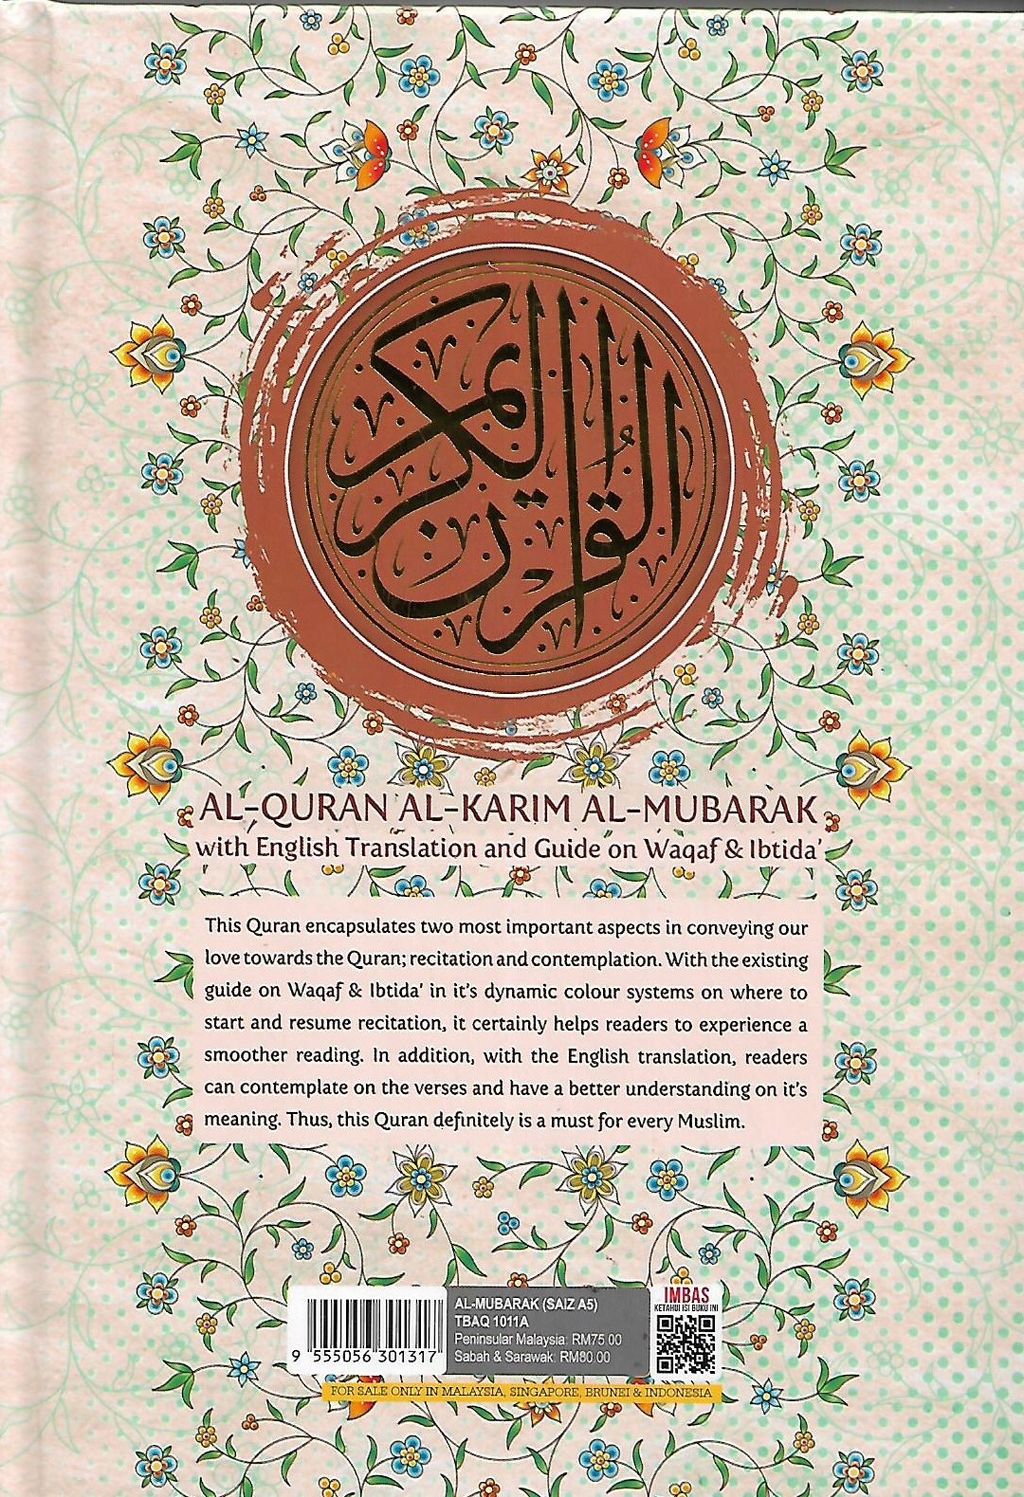 القرآن الكريم
AL-QURAN AL-KARIM AL-MUBARAK
with English Translation and Guide on Waqaf & Ibtida'
This Quran encapsulates two most important aspects in conveying our
love towards the Quran; recitation and contemplation. With the existing
guide on Waqaf & Ibtida' in it's dynamic colour systems on where to
start and resume recitation, it certainly helps readers to experience a
smoother reading. In addition, with the English translation, readers
can contemplate on the verses and have a better understanding on it's
meaning. Thus, this Quran definitely is a must for every Muslim.
AL-MUBARAK (SAIZ A5)
TBAQ 1011A
Peninsular Malaysia: RM75.00
Sabah & Sarawak: RM80.00
9 555056 301317
IMBAS
KETAHUI ISI BUKU INI
FOR SALE ONLY IN MALAYSIA, SINGAPORE, BRUNEI & INDONESIA